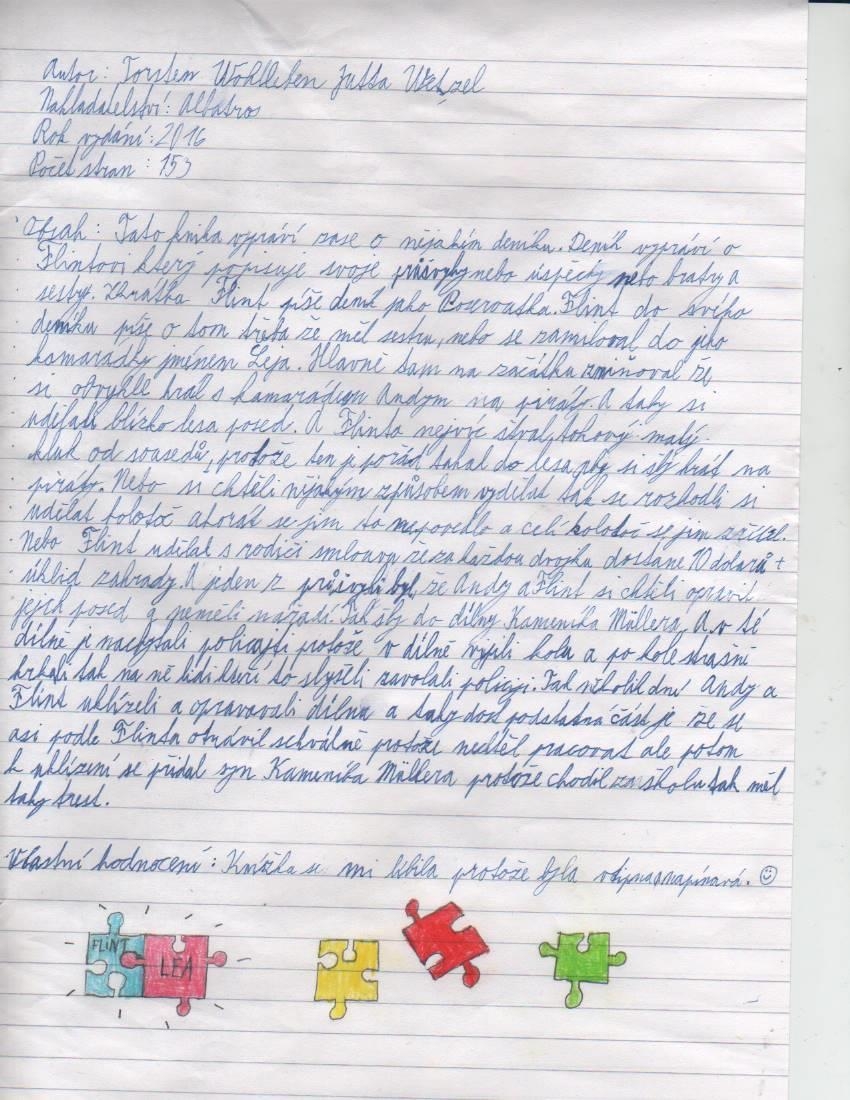 Autor: Torsten Wohlleben Jutta Wetzel
Nakladatelství: Albatros
Rok vydání: 2016
Počet stran: 153
Obsah: Tato kniha vypráví zase o nějakém deníku. Deník vypráví o
Flintovi který popisuje svoje průsvyhy nebo úspěchy nebo bratry a
sestry. Zkrátka Flint píše deník jako Poseroutka. Flint do svého
deníku píše o tom třeba že měl sestru, nebo se zamiloval do jeho
kamarádky jménem Leja. Hlavně tam na začátku zmiňoval že
si obvykle hrál s kamarádem Andym na piráty. A taky si
udělali blízko lesa posed. A Flinta nejvíc štval takový malý
kluk od sousedů, protože ten je pořád tahal do lesa aby si šly hrát na
piráty. Nebo si chtěli nějakým způsobem vydělat tak se rozhodli si
udělat kolotoč akorát se jim to nepovedlo a celí kolotoč se jim zřítil.
Nebo Flint udělal s rodiči smlouvu že za každou dvojku dostane 10 dolarů +
úklid zahrady. A jeden z průsvyhů byl, že Andy a Flint si chtěli opravit
jejich posed a neměli nářadí. Tak šly do dílny Kameníka Müllera. A v té
dílně je nachytali policajti protože v dílně vypili kolu a po kole strašně
krkali tak na ně lidi kteří to slyšeli zavolali policiji. Tak několik dní Andy a
Flint uklízeli a opravovali dílnu a taky dost podstatná část je že se
asi podle Flinta otrávil schválně protože nechtěl pracovat ale potom
k uklízení se přidal syn Kameníka Müllera protože chodil za školu tak měl
taky trest.
Vlastní hodnocení: Knížka se mi líbila protože byla vtipna a napínavá. ☺
FLINT
LEA